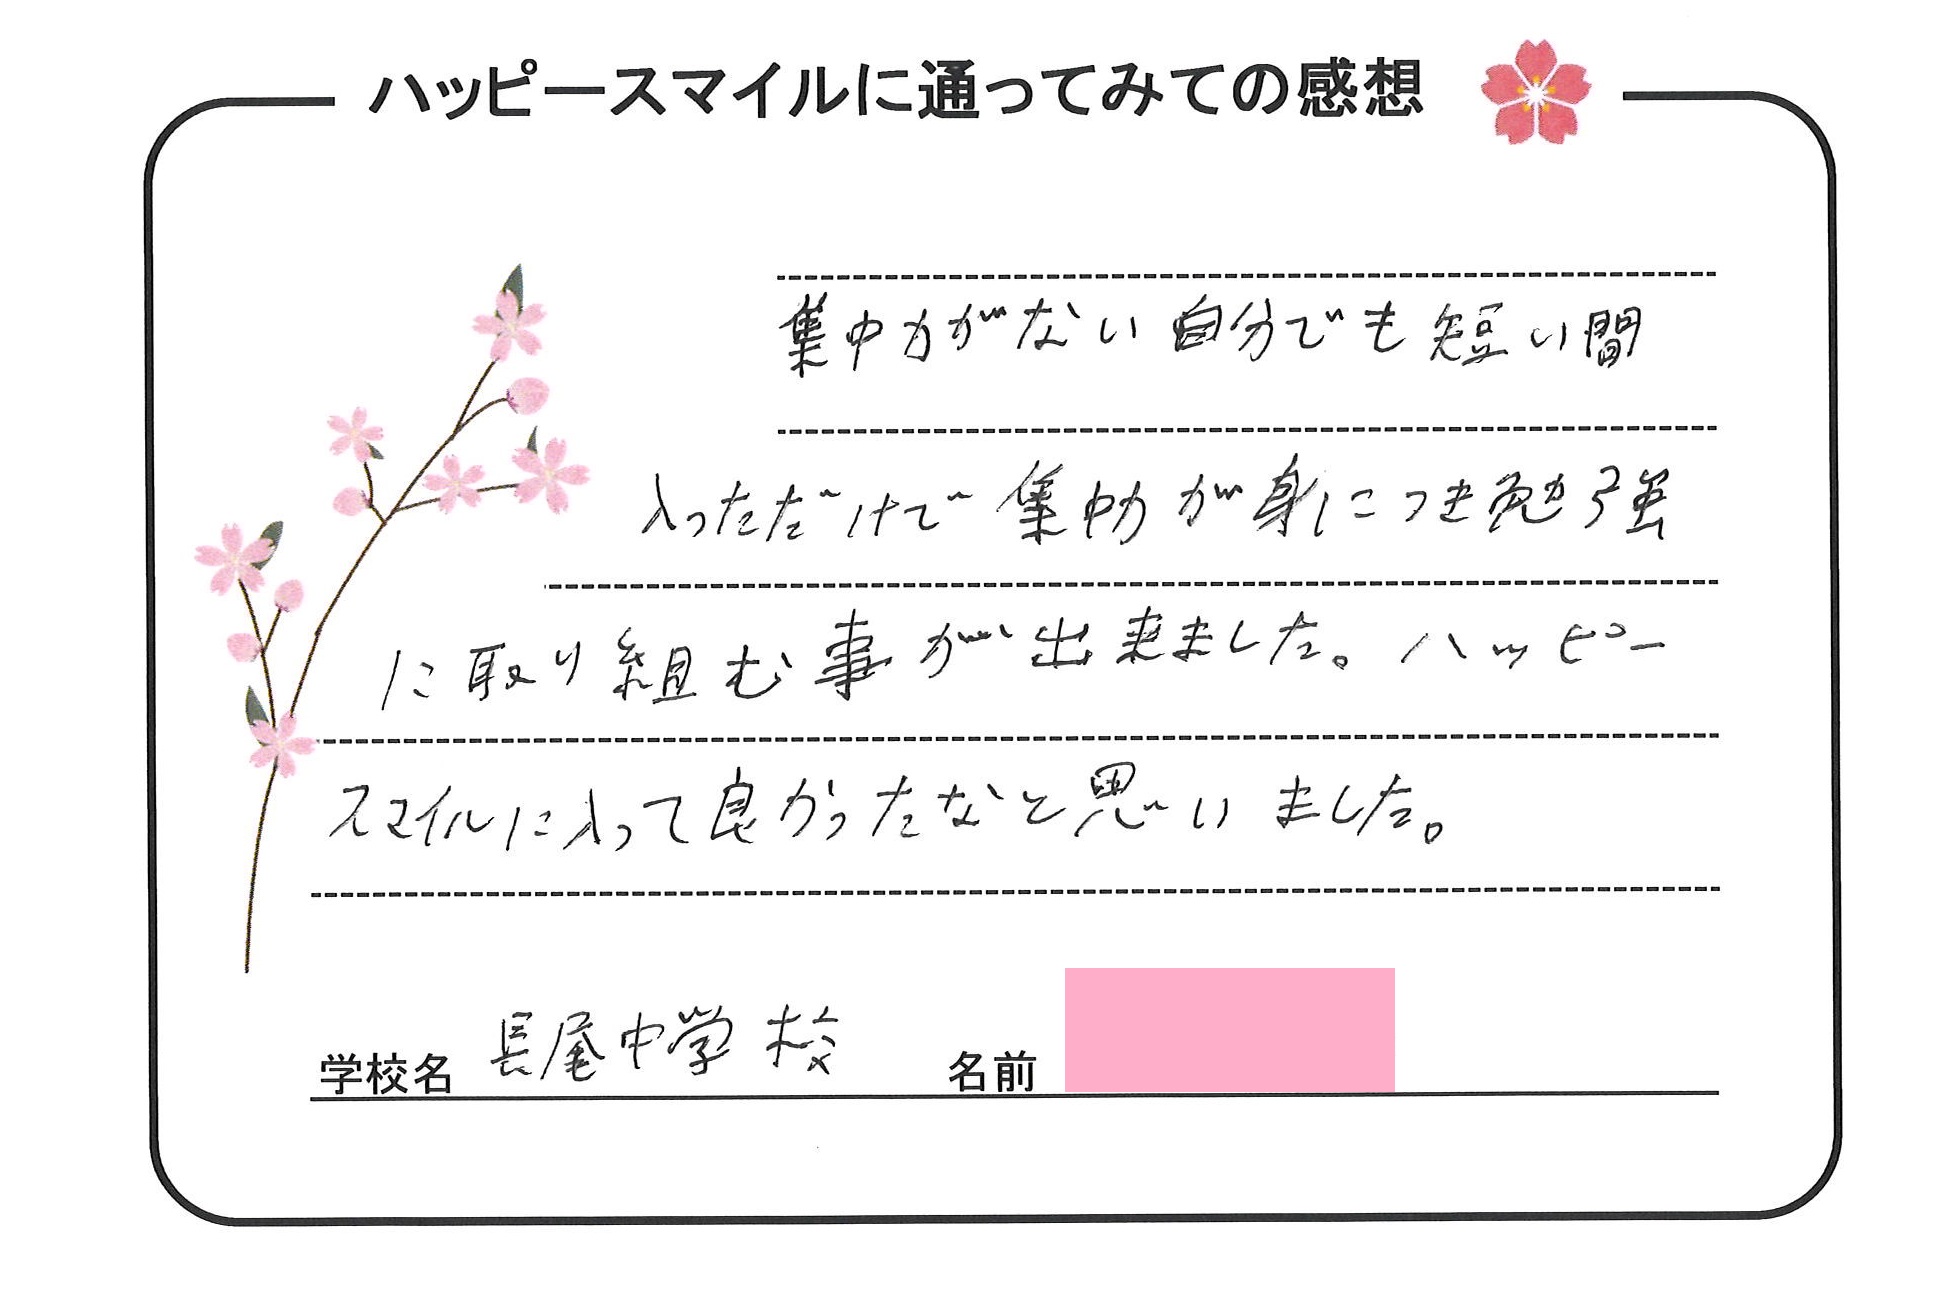 ハッピースマイルに通ってみての感想
集中力がない自分でも短い間
入っただけで集中力が身につき勉強
に取り組む事が出来ました。ハッピー
スマイルに入って良かったなと思いました。
学校名 長尾中学校 名前